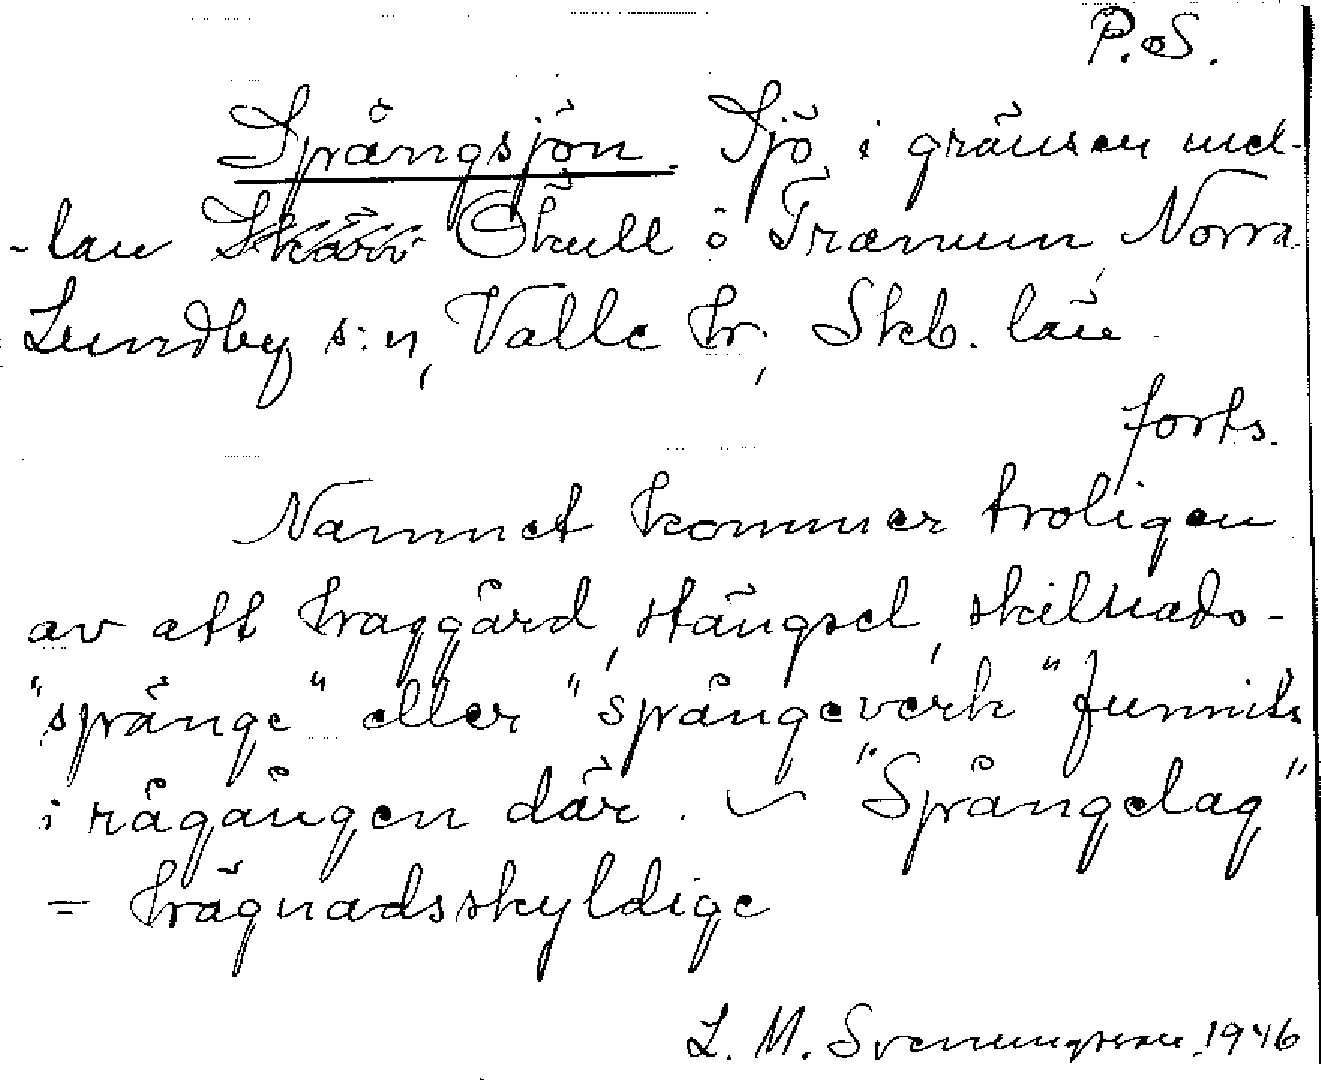 P.S.
Spångsjön. Sjö i gränsen mel-
-lan Skull o Tranum, Norra
Lundby s:n, Valle hr, Skb. län
forts.
Namnet kommer troligen
av att haggård, stängsel, skillnads-
"spänge" eller "spängeverk" funnits
i rågången där. "Spångelag"
= hägnadsskyldige
L. M. Svenungsson 1946